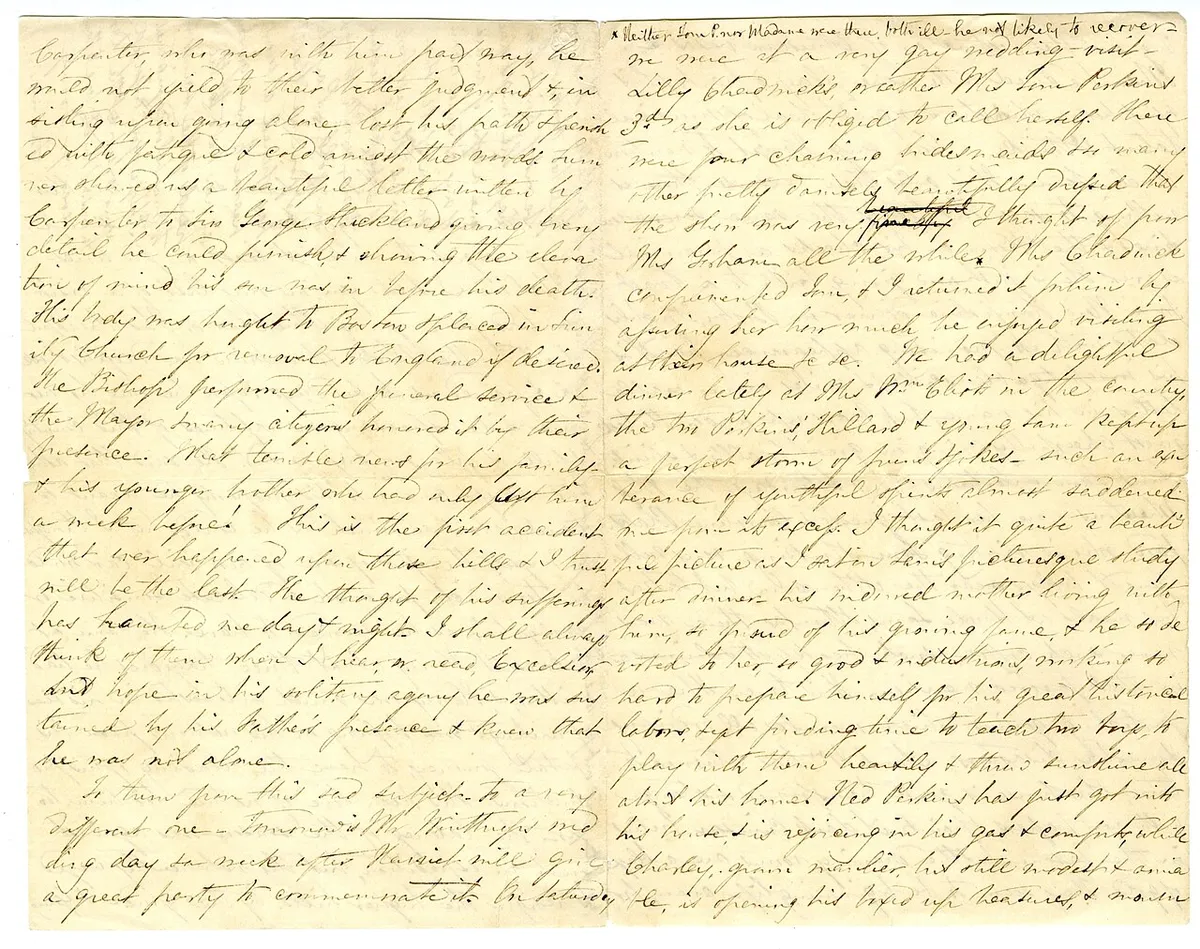 Carpenter, who was with him part way, he
would not yield to their better judgment & in
sisting upon going alone lost his path & perish
ed with fatigue & cold amidst the woods. Sum
ner showed us a beautiful letter written by
Carpenter to Sir George Strickland giving every
detail he could furnish & showing the eleva
tion of mind his son was in before his death.
His body was brought to Boston & placed in Trin
ity Church for removal to England if desired.
The Bishop performed the funeral service &
the Mayor & many citizens honored it by their
presence. What terrible news for his family-
& his younger brother who had only left him
a week before! This is the first accident
that ever happened upon those hills & I trust
will be the last. The thought of his sufferings
has haunted me day & night- I shall always
think of them when I hear, or read, Excelsior,
but hope in his solitary agony he was sus
tained by his Father's presence & knew that
he was not alone.
To turn from this sad subject- to a very
different one- Tomorrow is Mr Winthrop's wed
ding day & a week after Harriet will give
a great party to commemorate it. On Saturday
* Neither Tom P. nor Madame were there, both ill- he not likely to recover-
we were at a very gay wedding-visit-
Lilly Chadwick's, or rather Mrs Tom Perkins
3rd as she is obliged to call herself. There
were four charming bridesmaids & so many
other pretty damsels beautifully dressed that
the show was very beautiful I thought of poor
Mrs Gorham all the while.* Mrs Chadwick
complimented Tom, & I returned it for him by
assuring her how much he enjoyed visiting
at their house &c &c. We had a delightful
dinner lately at Mrs Wm Eliot's in the country,
the two Perkins, Hillard & young Sam kept up
a perfect storm of puns & jokes- such an exu
berance of youthful spirits almost saddened
me from its excess. I thought it quite a beauti
ful picture as I sat in Sam's picturesque study
after dinner- his widowed mother living with
him, so proud of his growing fame, & he so de
voted to her, so good & industrious, working so
hard to prepare himself for his great historical
labors, yet finding time to teach two boys, to
play with them heartily & throw sunshine all
about his home. Ned Perkins has just got into
his house, & is rejoicing in his gas & comforts, while
Charley, grown manlier, but still modest & amia
ble, is opening his boxed up treasures, & mourn